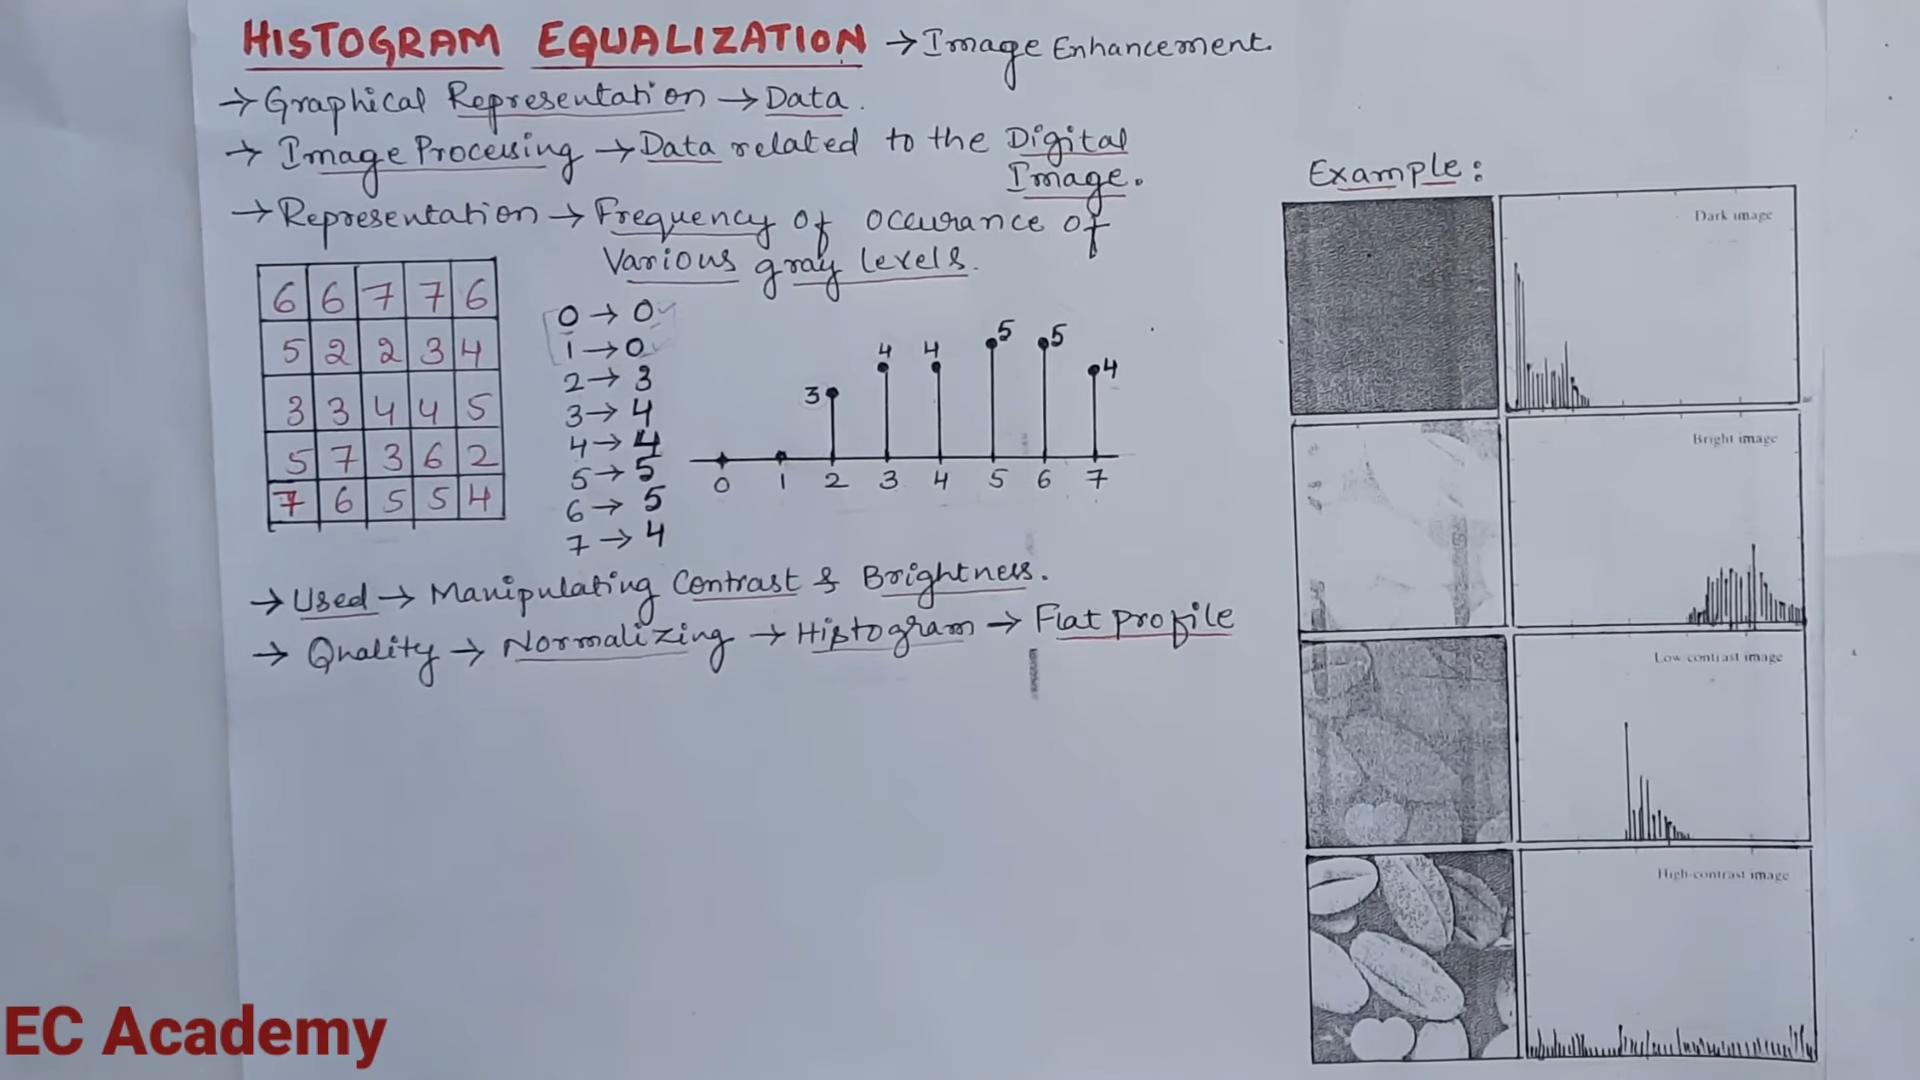 HISTOGRAM EQUALIZATION → Image Enhancement.
→ Graphical Representation → Data.
→ Image Processing → Data related to the Digital
Image.
→ Representation → Frequency of occurance of
Various gray levels.
6 6 7 7 6
5 2 2 3 4
3 3 4 4 5
5 7 3 6 2
7 6 5 5 4
0 → 0
1 → 0
2 → 3
3 → 4
4 → 4
5 → 5
6 → 5
7 → 4
3 4 4 5 5 4
0 1 2 3 4 5 6 7
→ Used → Manipulating Contrast & Brightness.
→ Quality → Normalizing → Histogram → Flat profile
Example:
Dark image
Bright image
Low contrast image
High-contrast image
EC Academy